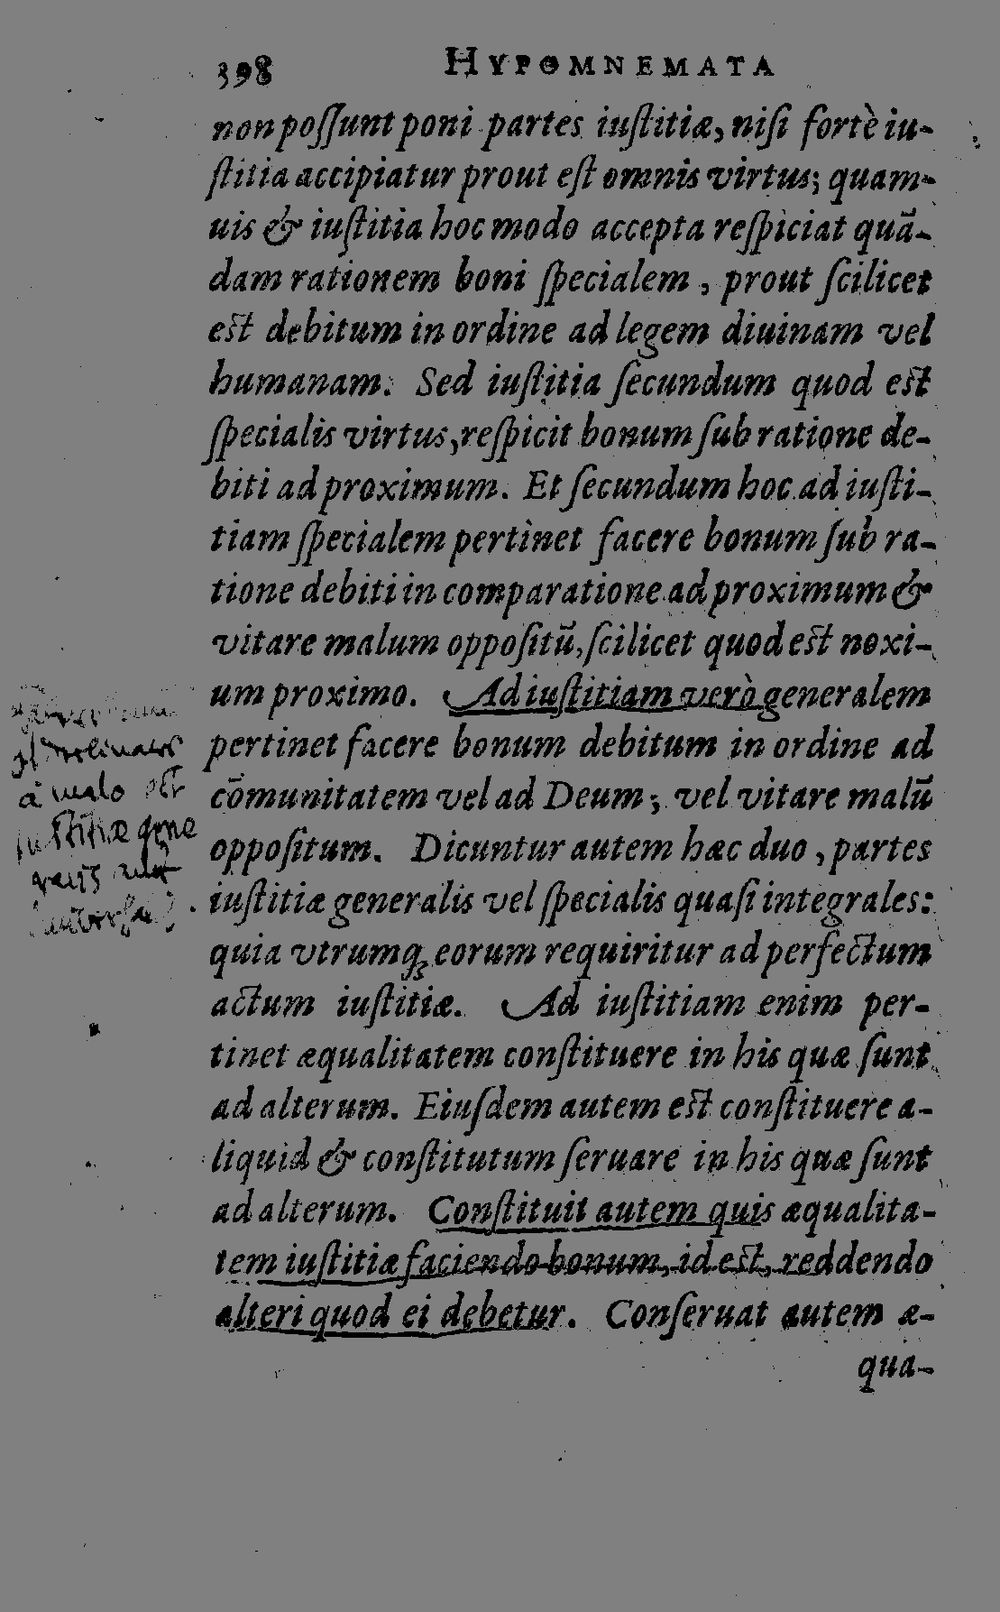 398 HYPOMNEMATA
non poſſunt poni partes iuſtitiæ, niſi fortè iu-
ſtitia accipiatur prout eſt omnis virtus; quam-
uis & iuſtitia hoc modo accepta reſpiciat quā-
dam rationem boni ſpecialem, prout ſcilicet
eſt debitum in ordine ad legem diuinam vel
humanam. Sed iuſtitia ſecundum quod eſt
ſpecialis virtus, reſpicit bonum ſub ratione de-
biti ad proximum. Et ſecundum hoc ad iuſti-
tiam ſpecialem pertinet facere bonum ſub ra-
tione debiti in comparatione ad proximum &
vitare malum oppoſitū, ſcilicet quod eſt noxi-
um proximo. Ad iuſtitiam verò generalem
pertinet facere bonum debitum in ordine ad
cōmunitatem vel ad Deum; vel vitare malū
oppoſitum. Dicuntur autem hæc duo, partes
iuſtitiæ generalis vel ſpecialis quaſi integrales:
quia vtrumq; eorum requiritur ad perfectum
actum iuſtitiæ. Ad iuſtitiam enim per-
tinet æqualitatem conſtituere in his quæ ſunt
ad alterum. Eiuſdem autem eſt conſtituere a-
liquid & conſtitutum ſeruare in his quæ ſunt
ad alterum. Conſtituit autem quis æqualita-
tem iuſtitiæ faciendo bonum, id eſt, reddendo
alteri quod ei debetur. Conſeruat autem æ-
qua-
à malo eſt